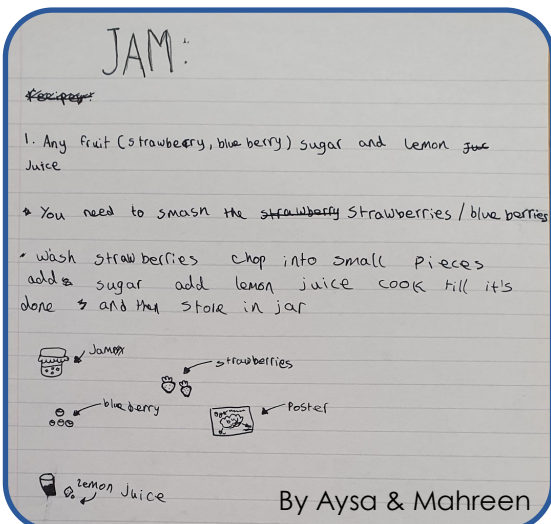 JAM:
Recipey:
1. Any fruit (strawberry, blue berry) sugar and lemon Juc
Juice
You need to smash the strawberry strawberries / blue berries
• wash strawberries chop into small pieces
add sugar add lemon juice cook till it's
done and then store in jar
Jam
strawberries
blue berry
Poster
Lemon Juice
By Aysa & Mahreen